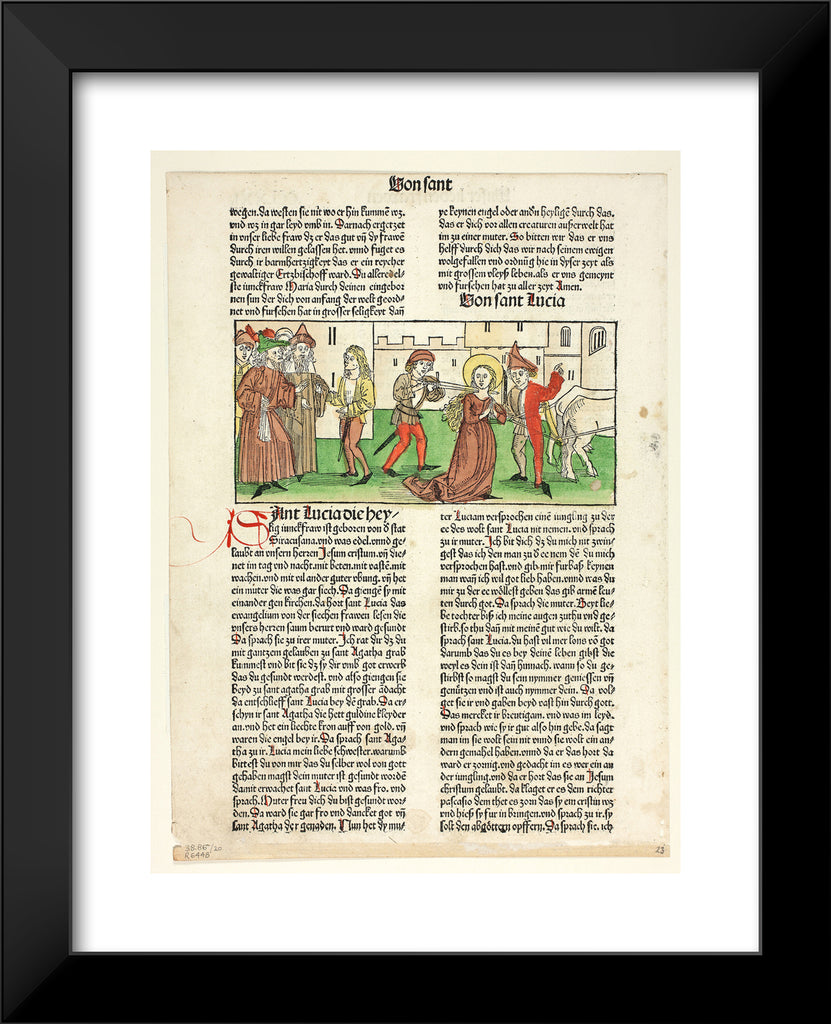 Von sant
wegen. da westen sie nit wo er hin kummen wz.
und wz in gar leyd umb in. Darnach ergetzet
in unser liebe fraw dz er das gut vň dy frawē
durch iren willen gelassen het. unnd fuget es
durch ir barmhertzigkeyt das er ein reycher
gewaltiger Ertzbischoff ward. Du allere el-
ste iunckfraw Maria durch deinen eingebor
nen sun der dich von anfang der welt geord-
net und fursehen hat in grosser seligkeyt daň
ye keynen engel oder andn heyligē durch das.
das er dich vor allen creaturen außerwelt hat
im zu einer muter. So bitten wir das er uns
helff durch dich das wir nach seinem ewigen
wolgefallen und ordnūg hie in dyser zeyt als
mit grossem vleyß leben. als er uns gemeynt
und fursehen hat zu aller zeyt Amen.
Von sant Lucia
SAnt Lucia die hey-
lig iunckfraw ist geboren von d stat
Siracusana. und was edel. unnd ge-
laubt an unsern herren Jesum cristum. vň die-
net im tag und nacht. mit beten. mit vastē. mit
wachen. und mit vil ander guter ubung. vň het
ein muter die was gar siech. Da giengē sy mit
einander gen kirchen. da hort sant Lucia das
ewangelium von der siechen frawen lesen die
unsers herren saum berurt und ward gesundt
Da sprach sie zu irer muter. Ich rat dir dz du
mit gantzem gelauben zu sant Agatha grab
kummest und bit sie dz sy dir umb got erwerb
das du gesundt werdest. und also giengen sie
beyd zu sant agatha grab mit grosser ādacht
da entschlieff sant Lucia bey dē grab. Da er-
schyn ir sant Agatha die hett guldine kleyder
an. und het ein liechte kron auff von gold. vň
waren die engel bey ir. Da sprach sant Aga-
tha zu ir. Lucia mein liebe schwester. warumb
bittest du von mir das du selber wol von gott
gehaben magst dein muter ist gesundt wordē
damit erwachet sant Lucia und was fro. und
sprach. Muter freu dich du bist gesundt wor-
den. Da ward sie gar fro und dancket got vň
sant Agatha der genaden. Nun het dy mu-
ter Luciam versprochen einē iungling zu der
ee des wolt sant Lucia nit nemen. und sprach
zu ir muter. Ich bit dich dz du mich nit zwin-
gest das ich den man zu d ee nem dē du mich
versprochen hast. und gib mir furbaß keynen
man waň ich wil got lieb haben. unnd was du
mir zu der ee wöllest geben das gib armē leu-
ten durch got. Da sprach die muter. Beyt lie-
be tochter biß ich meine augen zuthu und ge-
stirb. so thu daň mit meinē gut wie du wilt. da
sprach sant Lucia. du hast vil mer lons vō got
darumb das du es bey deinē leben gibst die
weyl es dein ist daň hinnach. wann so du ge-
stirbst so magst du sein nymmer geniessen vň
genützen und ist auch nymmer dein. Da vol-
get sie ir und gaben beyd vast hin durch gott.
Das mercket ir breutigam. und was im leyd.
und sprach wie sy ir gut also hin gebe. da sagt
man im sie wolt sein nit vnnd sie wolt ein an-
dern gemahel haben. unnd da er das hort da
ward er zornig. und gedacht im es wer ein an
der iungling. und da er hort das sie an Jesum
christum gelaubt. da klaget er es dem richter
pascasio dem thet es zorn das sy em cristin wz
und hieß sy fur in bringen. und sprach zu ir. sy
solt den abgöttern opffern. Da sprach sie. ich
38.86/20
R6448
23